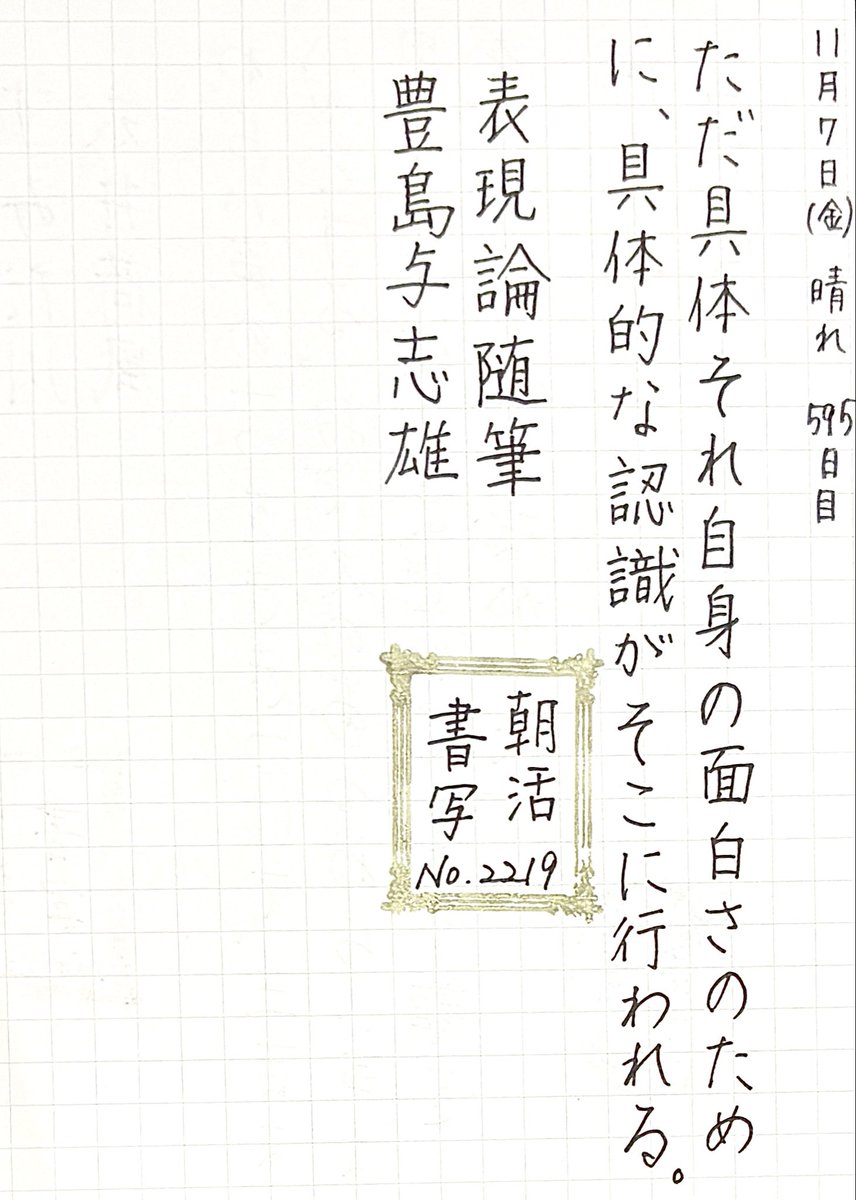 11月7日(金) 晴れ 595日目
ただ具体それ自身の面白さのため
に、具体的な認識がそこに行われる。
表現論随筆
豊島与志雄
朝活
書写
No.2219